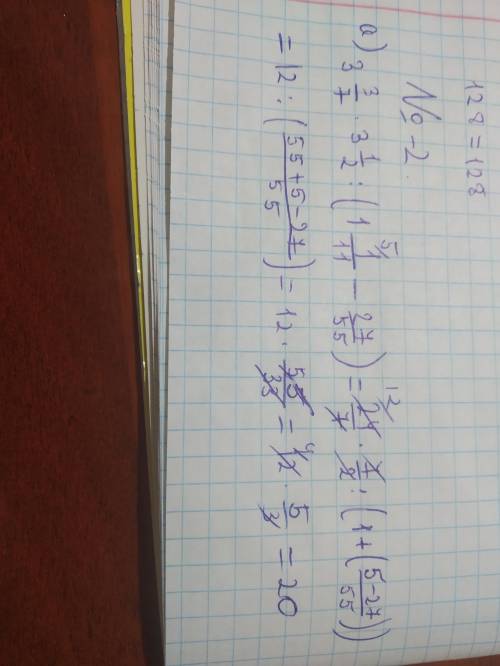 128 = 128
№ - 2.
а) 3 3/7 · 3 1/2 : (1 1/11 - 27/55) = 24/7 · 7/2 : (1 + (5-27/55))
= 12 : (55+5-27/55) = 12 · 55/33 = 12 · 5/3 = 20